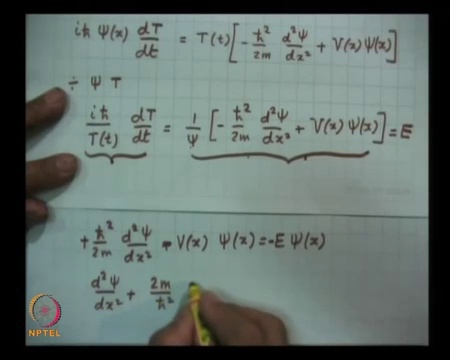 iħ Ψ(x) dT/dt = T(t)[-ħ²/2m d²Ψ/dx² + V(x)Ψ(x)]
÷ Ψ T
iħ/T(t) dT/dt = 1/Ψ [-ħ²/2m d²Ψ/dx² + V(x)Ψ(x)] = E
+ħ²/2m d²Ψ/dx² - V(x) Ψ(x) = -E Ψ(x)
d²Ψ/dx² + 2m/ħ²
NPTEL